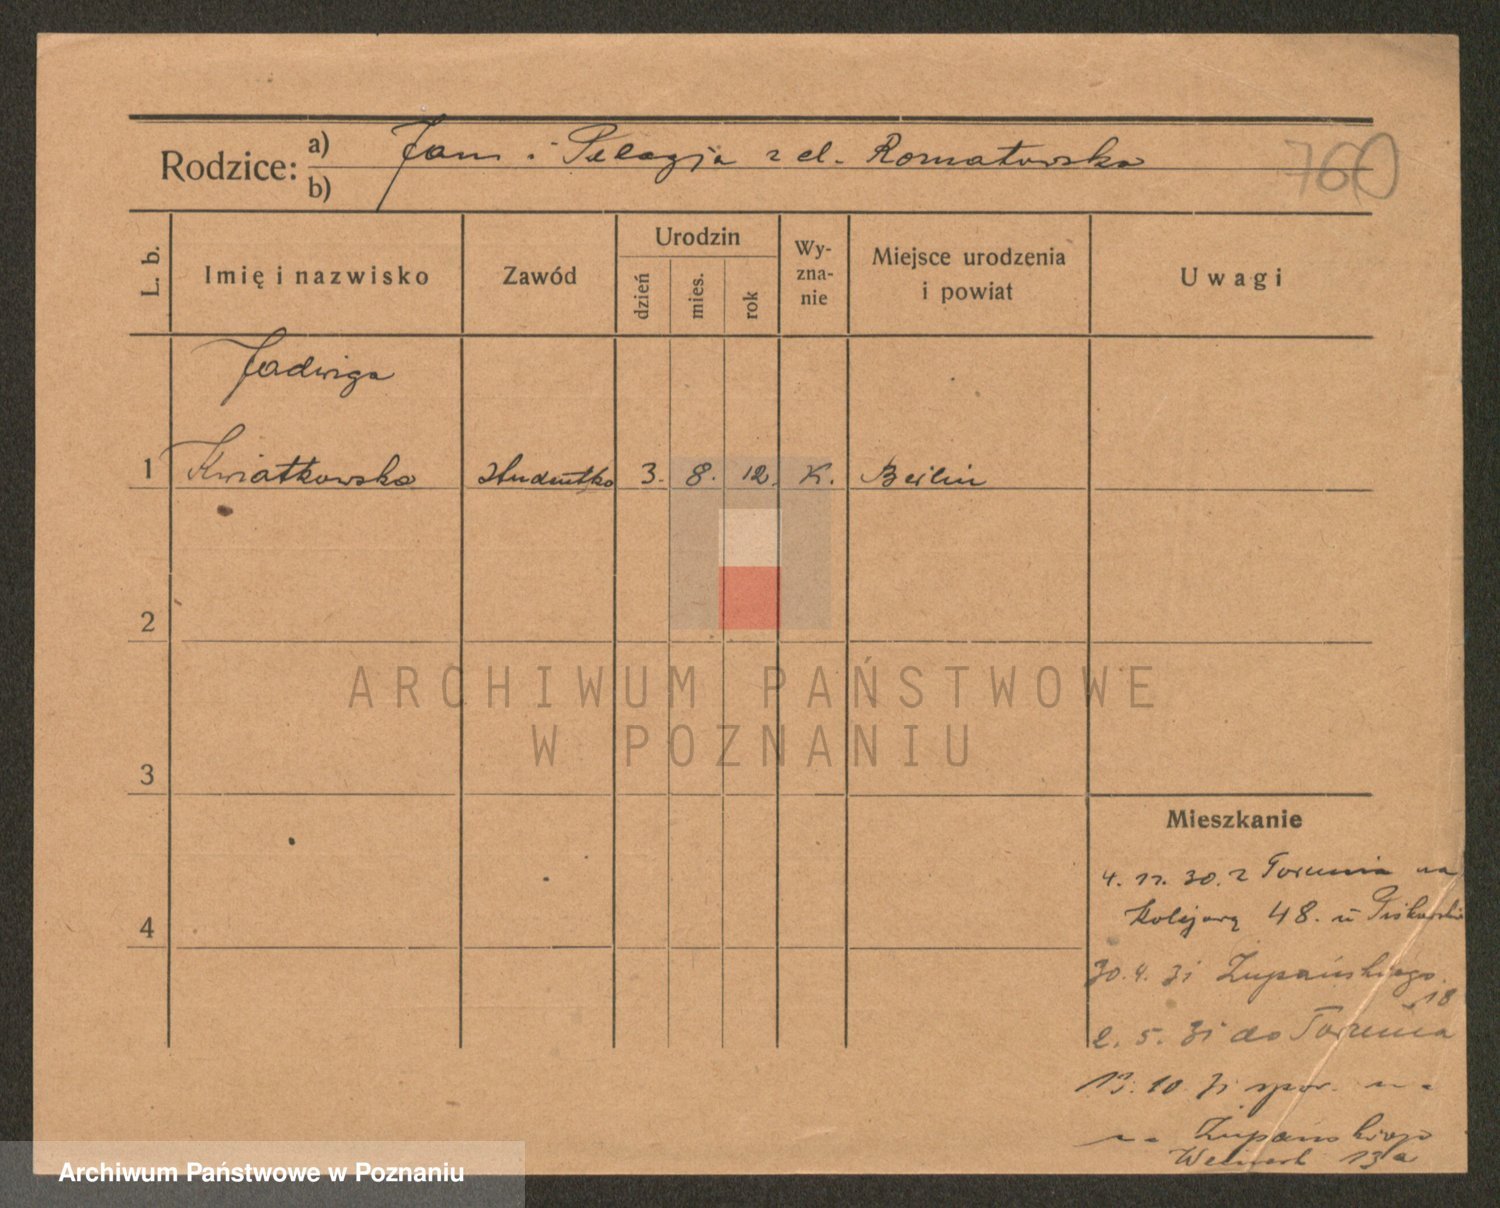 Rodzice: a) Jan i Pelagja z d. Romatowska
b)
760
L. b.
Imię i nazwisko
Zawód
Urodzin
dzień
mies.
rok
Wy-
zna-
nie
Miejsce urodzenia
i powiat
Uwagi
Jadwiga
1 Kwiatkowska studentka 3. 8. 12. K. Berlin
2
3
4
ARCHIWUM PAŃSTWOWE
W POZNANIU
Mieszkanie
4. 11. 30. z Torunia na
Kolejową 48. u
30. 4. 31 Żupańskiego
18
2. 5. 31 do Torunia
13. 10. 31 z
Żupańskiego
13a
Archiwum Państwowe w Poznaniu